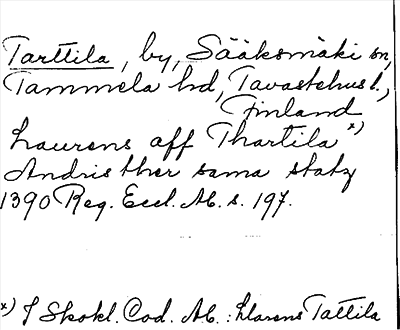 Tarttila, by, Sääksmäki sn,
Tammela hd, Tavastehus l.,
Finland
Laurens aff Thartila x)
Andris ther sama statz
1390 Reg. Eccl. Ab. s. 197.
x) I Skokl. Cod. Ab.: Larens Tattila